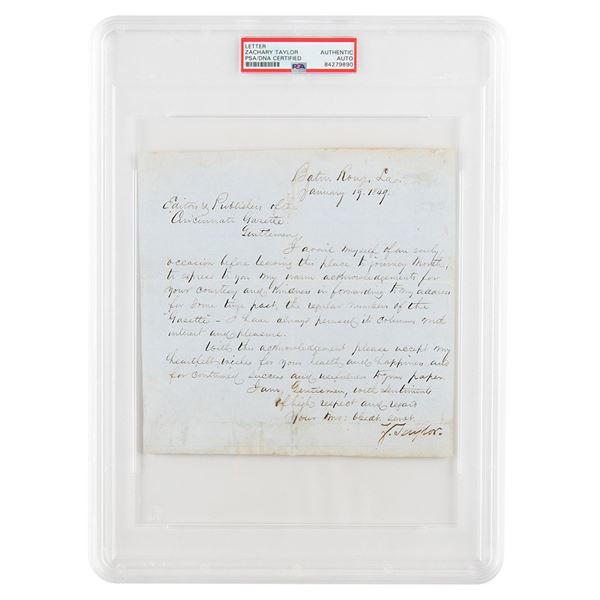 LETTER
ZACHARY TAYLOR
PSA/DNA CERTIFIED
AUTHENTIC
AUTO
84279890
PSA
Baton Roug, La.
January 19, 1849.
Editors & Publishers of the
Cincinnati Gazette
Gentlemen,
I avail myself of an early
occasion before leaving this place to journey North,
to express to you my warm acknowledgements for
your courtesy and kindness in forwarding to my address
for some time past, the regular numbers of the
"Gazette" - I have always perused its columns with
interest and pleasure.
With this acknowledgement please accept my
heartfelt wishes for your health and happiness and
for continued success and usefulness to your paper.
I am, Gentlemen, with sentiments
of high respect and regard
Your obedt. servt.
Z. Taylor.